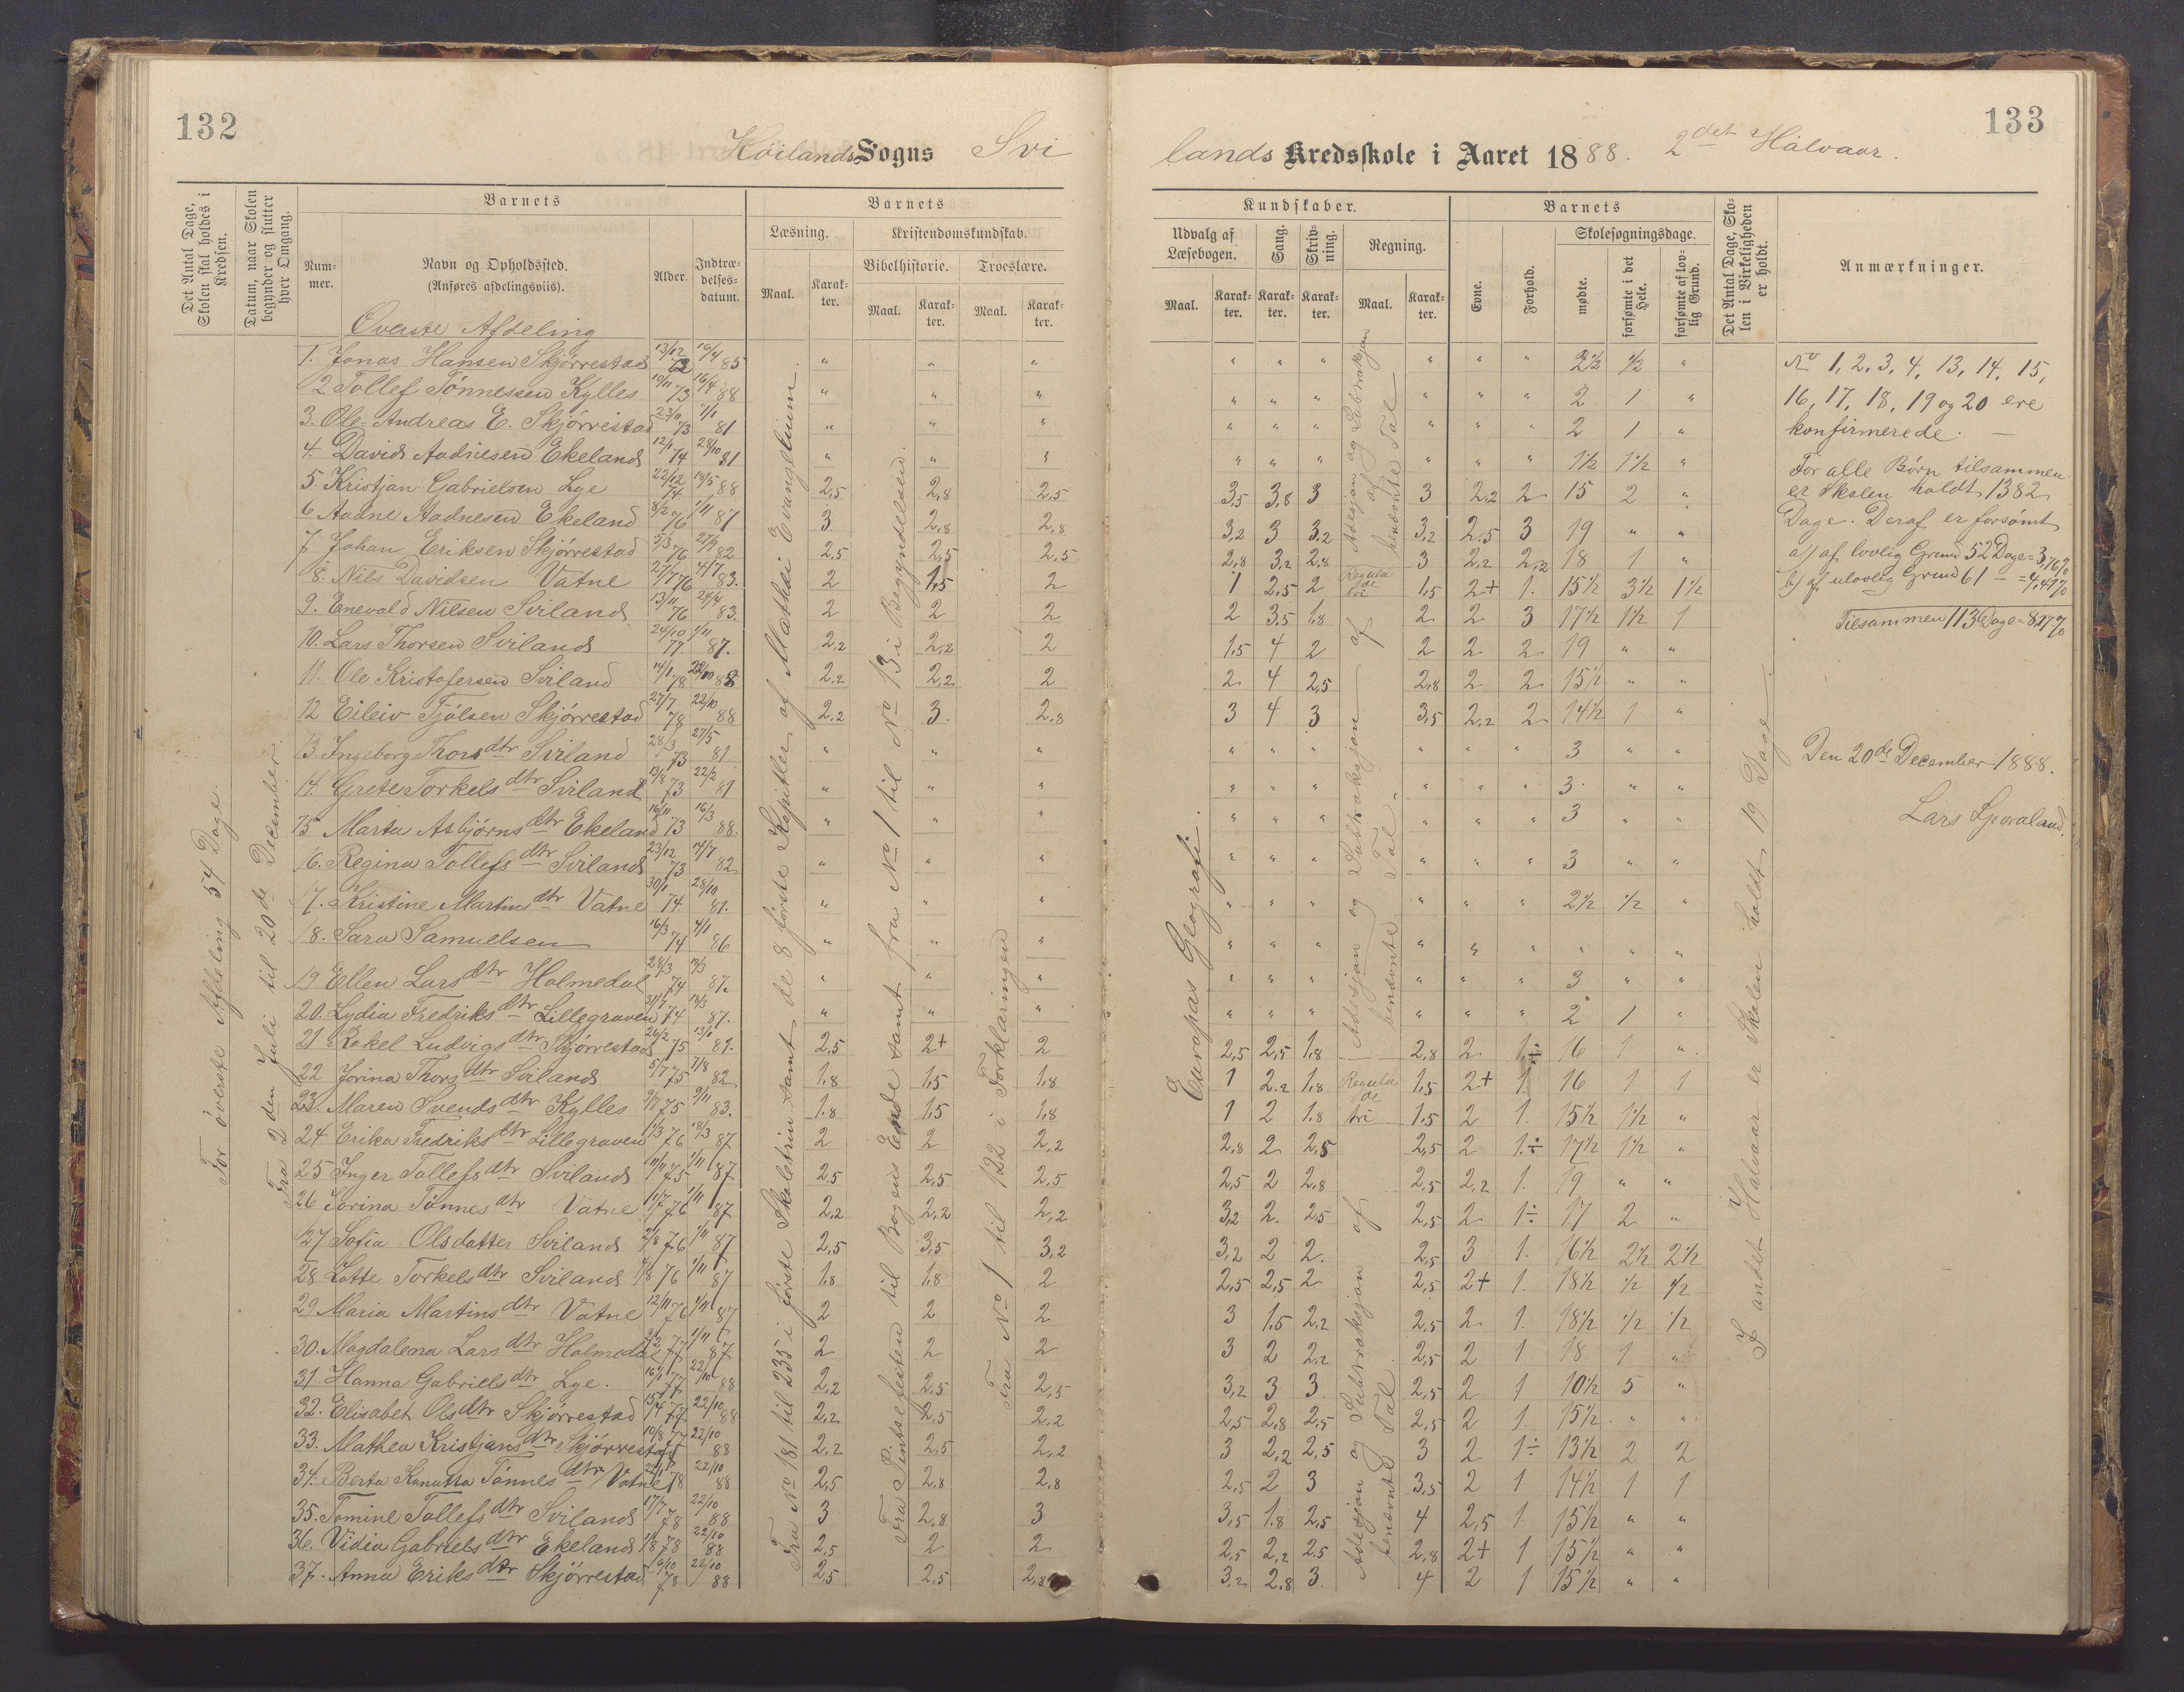 132
133
Höilands Sogns Svi
lands Kredsskole i Aaret 1888. 2det Halvaar.
Det Antal Dage, Skolen skal holdes i Kredsen.
Datum, naar Skolen begynder og slutter hver Omgang.
Barnets
Barnets
Kundskaber.
Barnets
Det Antal Dage, Skolen i Virkeligheden er holdt.
Anmærkninger.
Nummer.
Navn og Opholdssted.
(Anføres afdelingsviis).
Alder.
Indtrædelsesdatum.
Læsning.
Kristendomskundskab.
Bibelhistorie.
Troeslære.
Maal.
Karakter.
Maal.
Karakter.
Maal.
Karakter.
Udvalg af Læsebogen.
Sang.
Skrivning.
Regning.
Maal.
Karakter.
Karakter.
Karakter.
Maal.
Karakter.
Evne.
Forhold.
Skolesøgningsdage.
mødte.
forsømte i det Hele.
forsømte af lovlig Grund.
Överste Afdeling
1. Jonas Hansen Skjörrestad 13/12 72 16/4 85 " " " " " " " " " 2½ ½ "
2 Tollef Tönnessen Kylles 10/11 73 16/4 88 " " " " " " " " " 2 1 "
3. Ole-Andreas E. Skjörrestad 23/11 73 1/1 81 " " " " " " " " " 2 1 "
4. David Aadnesen Ekeland 12/1 74 28/10 81 " " " " " " " " " 1½ 1½ "
5. Kristjan Gabrielsen Lye 22/12 74 14/5 88 2,5 2,8 2,5 3,5 3,8 3 3 2,2 2 15 2 "
6 Aadne Aadnesen Ekeland 8/2 76 1/11 87 3 2,8 2,8 3,2 3 3,2 3,2 2,5 3 19 " "
7 Johan Eriksen Skjörrestad 5/3 76 27/9 82 2,5 2,5 2,5 2,8 3,2 2,8 3 2,2 2,2 18 1 "
8. Nils Davidsen Vatne 27/7 76 4/7 83. 2 1,5 2 1 2,5 2 1,5 2+ 1. 15½ 3½ 1½
9. Enevald Nilsen Sviland 13/11 76 24/4 83. 2 2 2 2 3,5 1,8 2 2 3 17½ 1½ 1
10. Lars Thorsen Sviland 24/10 77 1/11 87. 2,2 2,2 2 1,5 4 2 2 2 2 19 " "
11. Ole Kristofersen Sviland 14/1 78 22/10 88 2,2 2,2 2 2 4 2,5 2,8 2 2 15½ " "
12 Eileiv Tjölsen Skjörrestad 27/7 78 22/10 88 2,2 3. 2,8 3 4 3 3,5 2,2 2 14½ 1 "
13. Ingeborg Thorsdtr Sviland 28/3 73 27/5 81 " " " " " " " " " 3 " "
14. Grete Torkelsdtr Sviland 13/8 73 22/2 81 " " " " " " " " " 3 " "
15 Marta Asbjörnsdtr Ekeland 16/11 73 16/3 88. " " " " " " " " " 3 " "
16. Regina Tollefsdtr Sviland 23/12 73 14/7 82 " " " " " " " " " 3 " "
17. Kristine Martinsdtr Vatne 30/1 74 28/10 81. " " " " " " " " " 2½ ½ "
18. Sara Samuelsen 16/3 74 4/1 86 " " " " " " " " " " " "
19 Ellen Larsdtr Holmedal 28/3 74 14/3 87. " " " " " " " " " 3 " "
20. Lydia Fredriksdtr Lillegraven 31/7 74 18/3 87. " " " " " " " " " 2 1 "
21 Rakel Ludvigsdtr Skjörrestad 26/2 75 13/1 81. 2,5 2+ 2 2,5 2,5 1,8 2,8 2 1÷ 16 1 "
22 Jorina Thorsdtr Sviland 5/7 75 7/8 82 1,8 1,5 1,8 1 2,2 1,8 1,5 2+ 1. 16 1 1
23. Maren Svendsdtr Kylles 9/7 75 9/11 83. 1,8 1,5 1,8 1 2 1,8 1,5 2 1. 15½ 1½ "
24 Erika Fredriksdtr Lillegraven 1/3 76 18/3 87 2 2 2,2 2,8 2 2,5 2,5 2 1÷ 17½ 1½ "
25 Inger Tollefsdtr Sviland 11/11 75 1/11 87 2,5 2,5 2,5 2,5 2 2,8 2,5 2,2 1. 19 " "
26 Jorina Tönnesdtr Vatne 11/7 76 1/11 87 2,2 2,2 2,2 3,2 2. 2,5 2,5 2 1÷ 17 2 "
27 Sofia Olsdatter Sviland 2/8 76 1/11 87 2,5 3,5 3,2 3,2 2 2. 2,5 3 1. 16½ 2½ 2½
28 Lotte Torkelsdtr Sviland 7/8 76 1/11 87 1,8 1,8 2 2,5 2,5 2 2,5 2+ 1. 18½ ½ ½
29 Maria Martinsdtr Vatne 12/11 76 1/11 87 2 2 2 3 1,5 2,2 2,5 2 1. 18½ ½ ½
30. Magdalena Larsdtr Holmedal 77 1/11 87 2 2 2 3 2 2,2 2,5 2 1 18 1 "
31. Hanna Gabrielsdtr Lye. 16/1 77 22/10 88 2,2 2,5 2,5 3,2 3 3 2,5 2 1 10½ 5 "
32. Elisabet Olsdtr Skjörrestad 15/4 77 22/10 88 2,2 2,5 2,2 2,5 2,8 2,5 2,5 2 1. 15½ " "
33. Mathea Kristjansdtr Skjörrestad 10/8 77 22/10 88 2,2 2,5 2,2 3 2,2 2,5 3 2 1÷ 13½ 2 2
34. Berta Kanutta Tönnesdtr Vatne 78 22/10 88 2,5 2,8 2,8 2,5 2 3 3,5 2 1 14½ 1 1
35. Tomine Tollefsdtr Sviland 17/7 78 22/10 88 3 2,8 3 3,5 1,8 2,5 4 2,5 1 15½ " "
36. Vidia Gabrielsdtr Ekeland 1/8 78 22/10 88 2,5 2 2 2,5 2,2 2,5 2,8 2+ 1 15½ " "
37. Anna Eriksdtr Skjörrestad 19/10 78 22/10 88 2,5 2,5 2,8 3,2 2,8 3 4 2 1 15½ " "
For överste Afdeling 54 Dage.
Fra 2den Juli til 20de December.
Fra No 181 til 235 i förste Skoletrin samt de 8 förste Kapitler af Mathæi Evangelium.
Fra Pintsefesten til Bogens Ende samt fra No 1 til No 13 i Begyndelsen.
Fra No 1 til 122 i Forklaringen
Europas Geografi.
Adesjon og Subtraksjon af benævnte Tal
Regula de tri
Adesjon og Subtraksjon af benævnte Tal.
Regula de tri
Adesjon og Subtraksjon af benævnte Tal.
I andet Halvaar er Skolen holdt 19 Dage.
No 1, 2, 3, 4, 13, 14, 15,
16, 17, 18, 19 og 20 ere
konfirmerede. —
For alle Børn tilsammen
er Skolen holdt 1382
Dage. Deraf er forsömt
a) af lovlig Grund 52 Dage = 3,76%
b) af ulovlig Grund 61 — = 4,41%
Tilsammen 113 Dage = 8,17%
Den 20de December 1888.
Lars Sporaland.